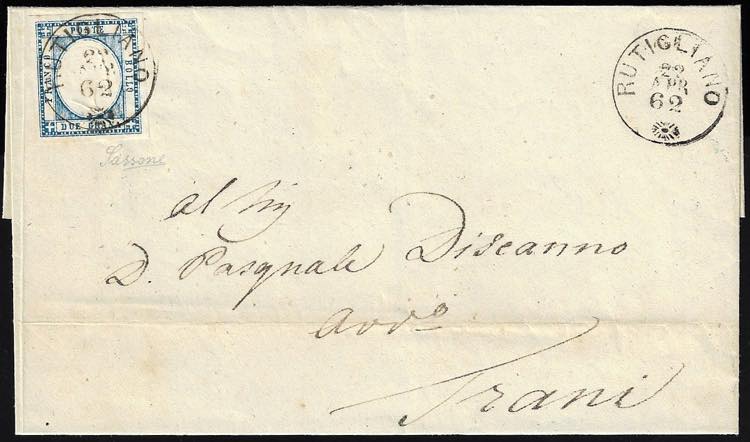 FRANCO POSTE BOLLO
DUE GRANA
RUTIGLIANO
22
APR
62
RUTIGLIANO
22
APR
62
Sassone
al Sig
D. Pasquale Discanno
Avvo
Trani